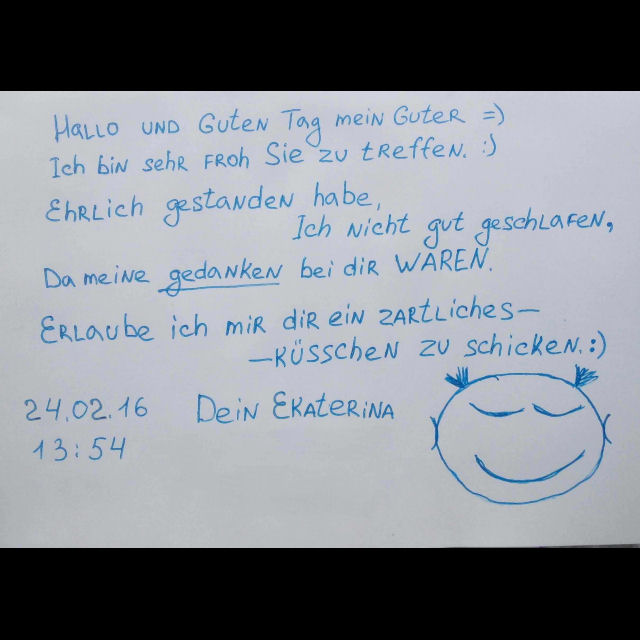 Hallo und Guten Tag mein Guter =)
Ich bin sehr froh Sie zu treffen. :)
Ehrlich gestanden habe,
Ich nicht gut geschlafen,
Da meine gedanken bei dir waren.
Erlaube ich mir dir ein zartliches—
—Küsschen zu schicken. :)
24.02.16 Dein Ekaterina
13:54